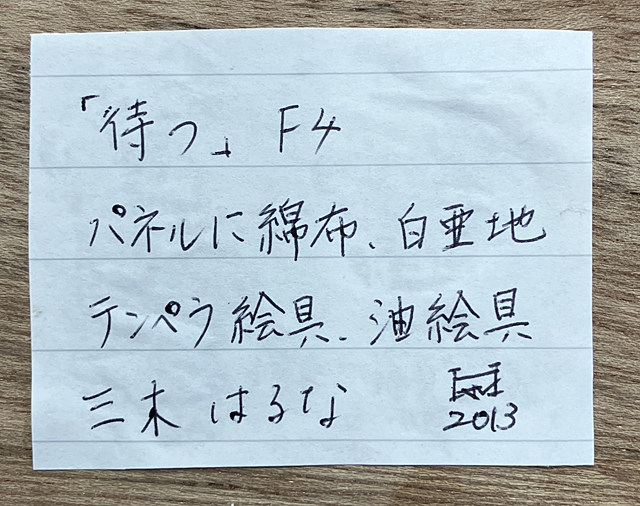 「待つ」 F4
パネルに綿布、白亜地
テンペラ絵具、油絵具
三木 はるな
2013